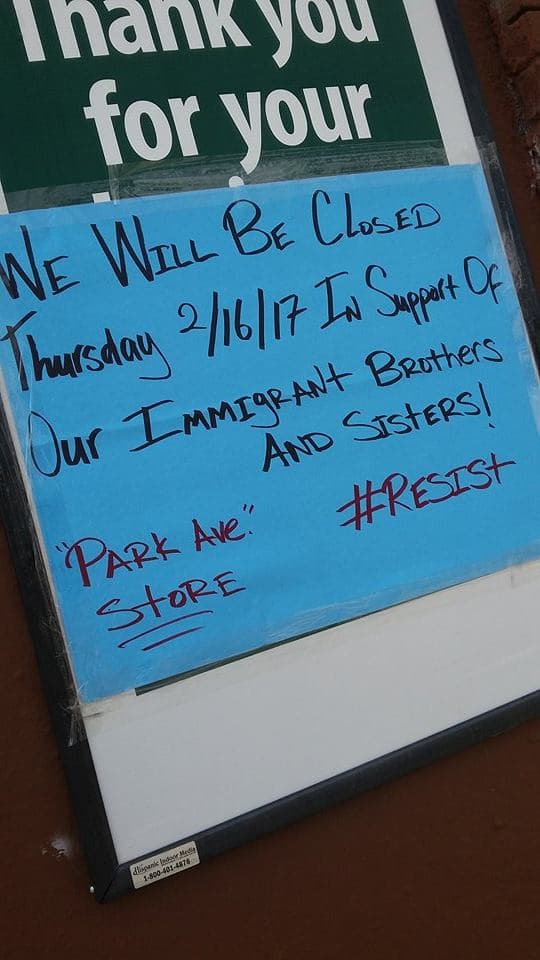 Thank you
for your
WE WILL BE CLOSED
Thursday 2/16/17 IN Support OF
Our IMMIgRANt BROthERS
AND SISTERS!
"PARK AVE." #RESISt
StORE
Hispanic Indoor Media
1-800-401-4876